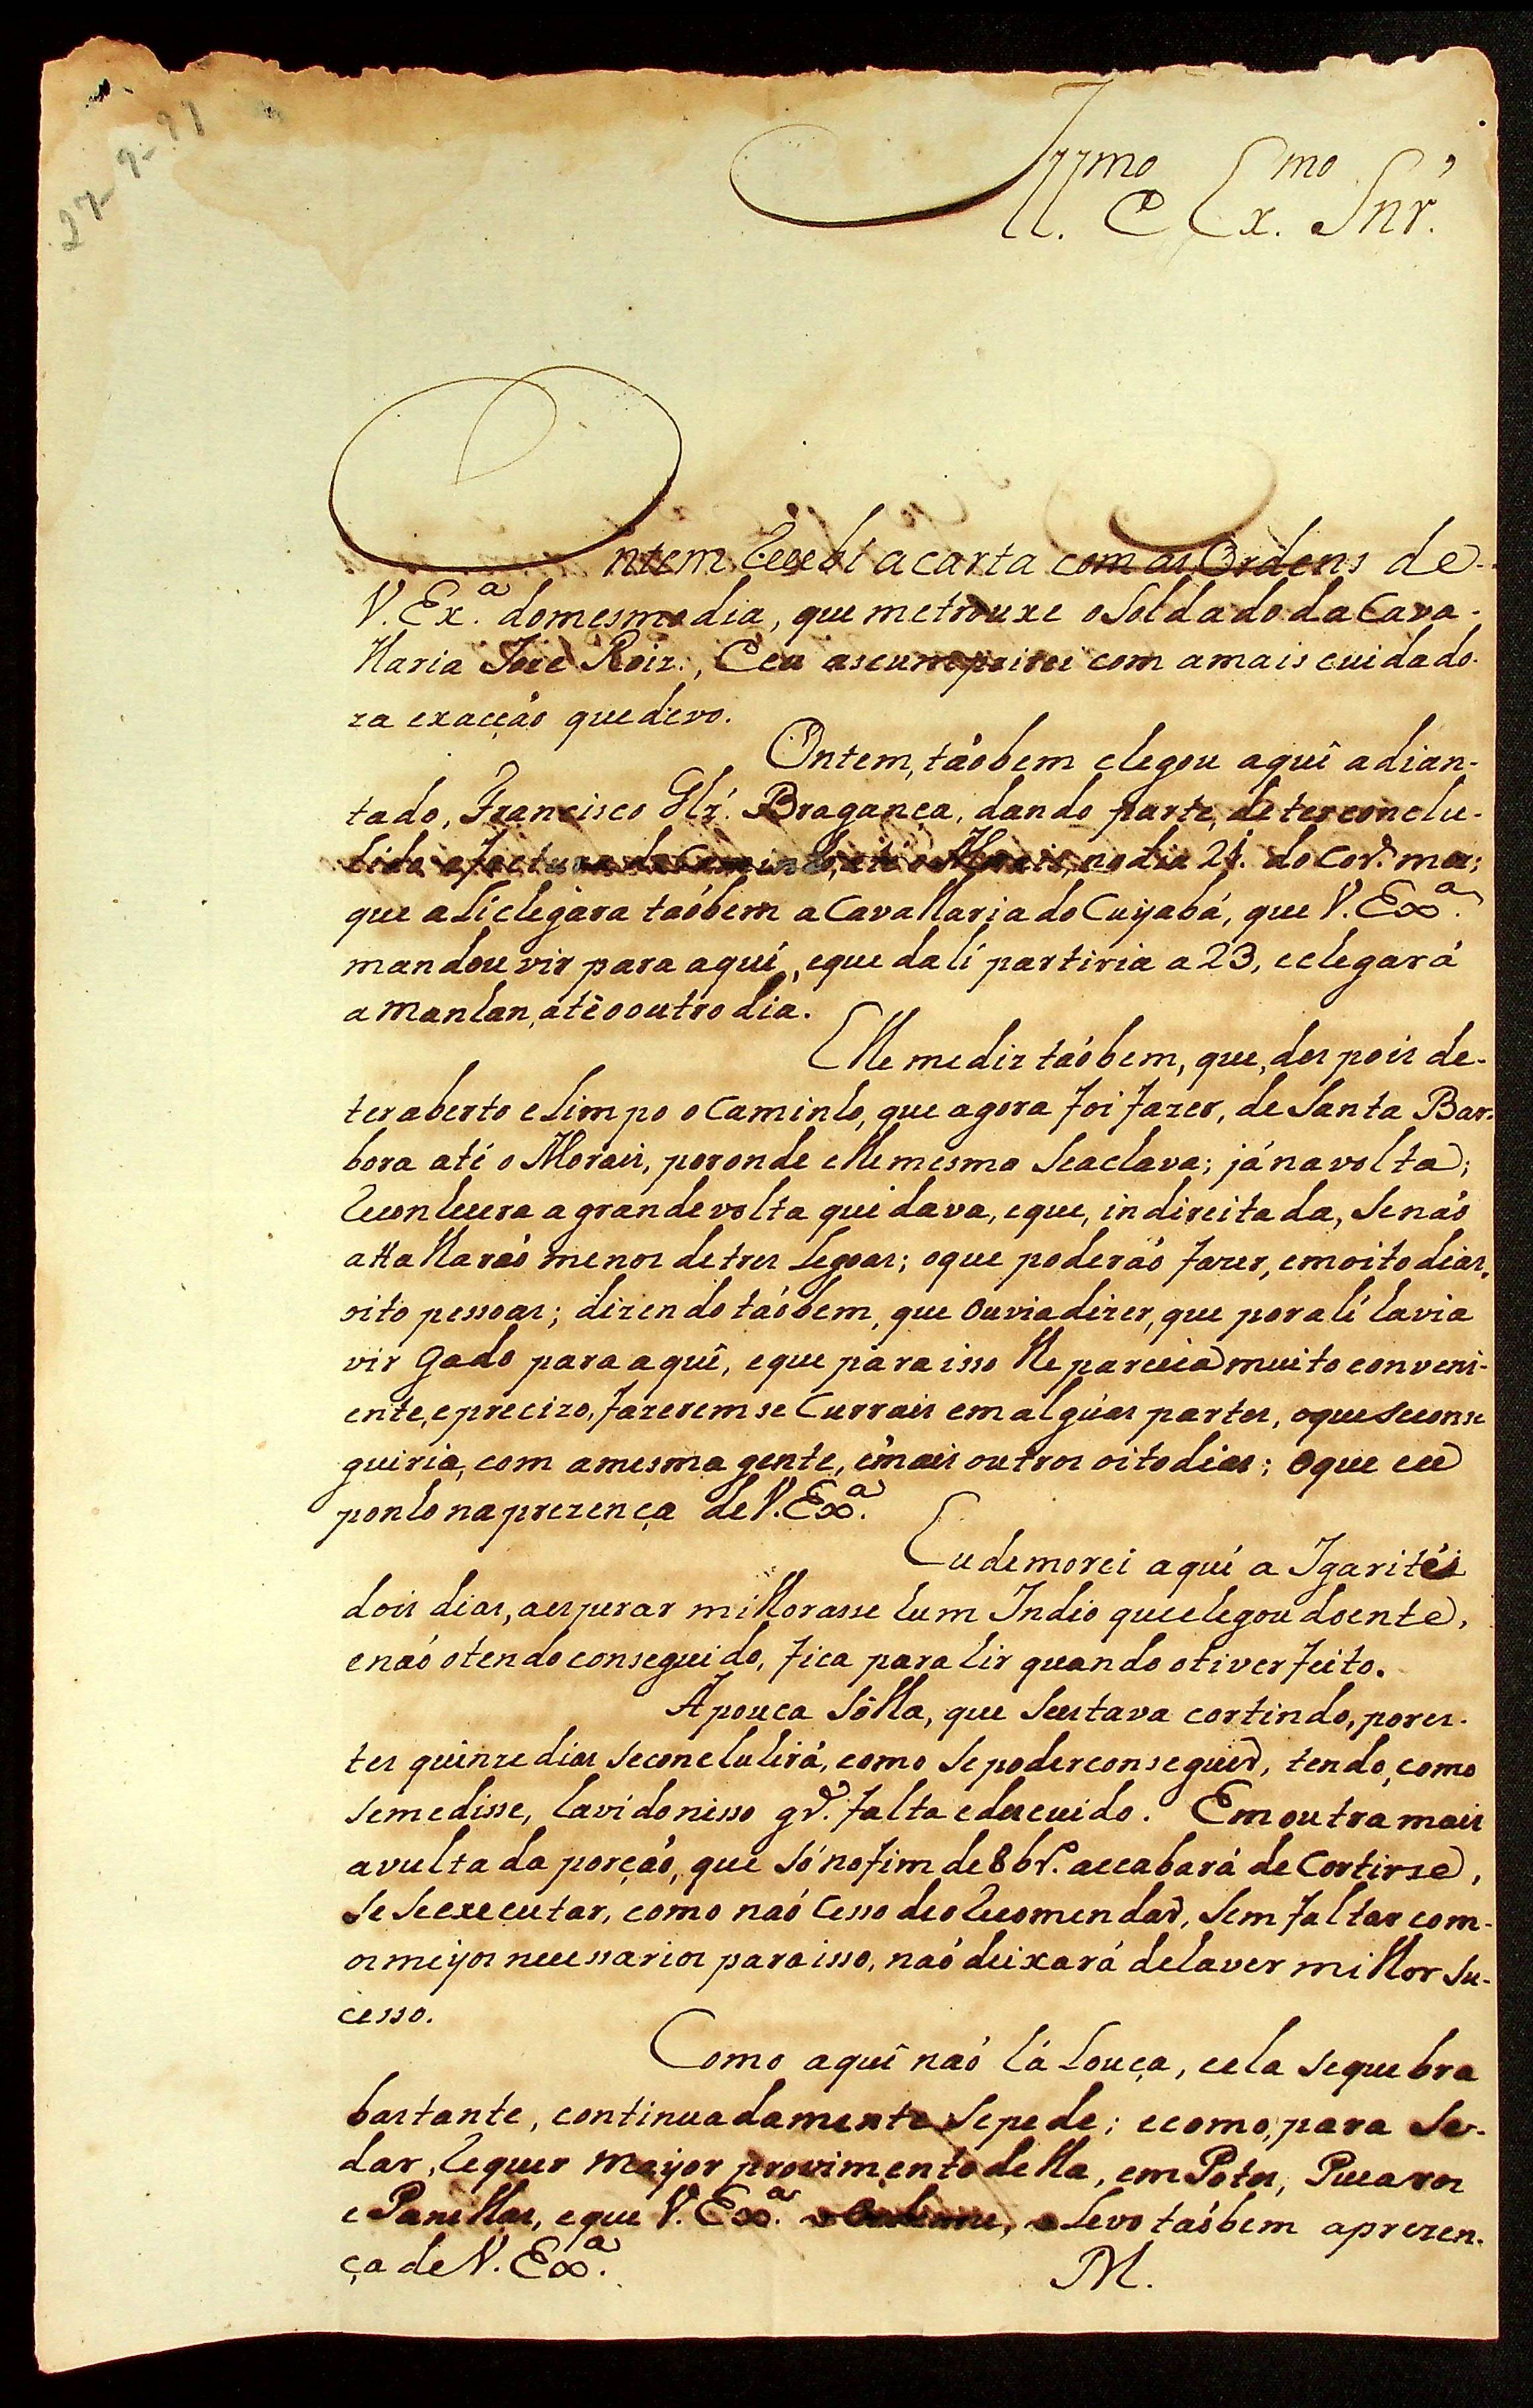 27-9-91
Ill.mo e Ex.mo Snr.
Ontem Recebi a carta com as Ordens de
V. Ex.a do mesmo dia, que me trouxe o Soldado da Cava-
llaria Joze Roiz., e eu as cumprirei com a mais cuidado-
za exacção que devo.
Ontem, tãobem chegou aquî adian-
tado, Francisco Glz. Bragança, dando parte, de ter conclu-
hido a factura do Caminho, athé o Morais, no dia 21. do Cor.e mez;
que ali chegára tãobem a Cavallaria do Cuyabá, que V. Ex.a
mandou vir para aquí, e que dalí partiria a 23, e chegará
a manhan, atê o outro dia.
Elle me diz tãobem, que, des pois de
ter aberto e Limpo o Caminho, que agora foi fazer, de Santa Bar-
bora até o Morais, por onde elle mesmo Se achava; já na volta;
Reconhecera a grande volta que dava, e que, indireitada, Se não
atta lharáõ menos de tres Legoas; o que poderáõ fazer, em oito dias,
oito pessoas; dizendo tãobem, que Ouvia dizer, que por alí havia
vir Gado para aquî, e que para isso lhe parecia muito conveni-
ente, e precizo, fazerem se Currais em algúas partes, o que Se conse
guiria, com a mesma gente, em mais outros oito dias; O que eu
ponho na prezença de V. Ex.a
Eu demorei aquí a Igarité
dois dias, a esperar milhorasse hum Indio que chegou doente,
e não o tendo conseguido, fica para hir quando o tiver feito.
A pouca Sólla, que Se estava cortindo, por es-
tes quinze dias Se concluhirá, como Se poder conseguir, tendo, como
Se me disse, havido nisso gr.de falta e descuido. Em outra mais
avultada porção, que Só no fim de 8br.o accabará de Cortirse,
Se Se executar, como não Cesso de o Recomendar, Sem faltar com
os meyos necessarios para isso, não deixará de haver milhor Su-
cesso.
Como aquî não há Louça, e ella Se quebra
bastante, continuadamente Se pede; e como, para Se
dar, Requer Mayor provimento della, em Potes, Pucaros
e Panellas, e que V. Ex.a o Ordene, o Levo tãobem a prezen-
ça de V. Ex.a
M.